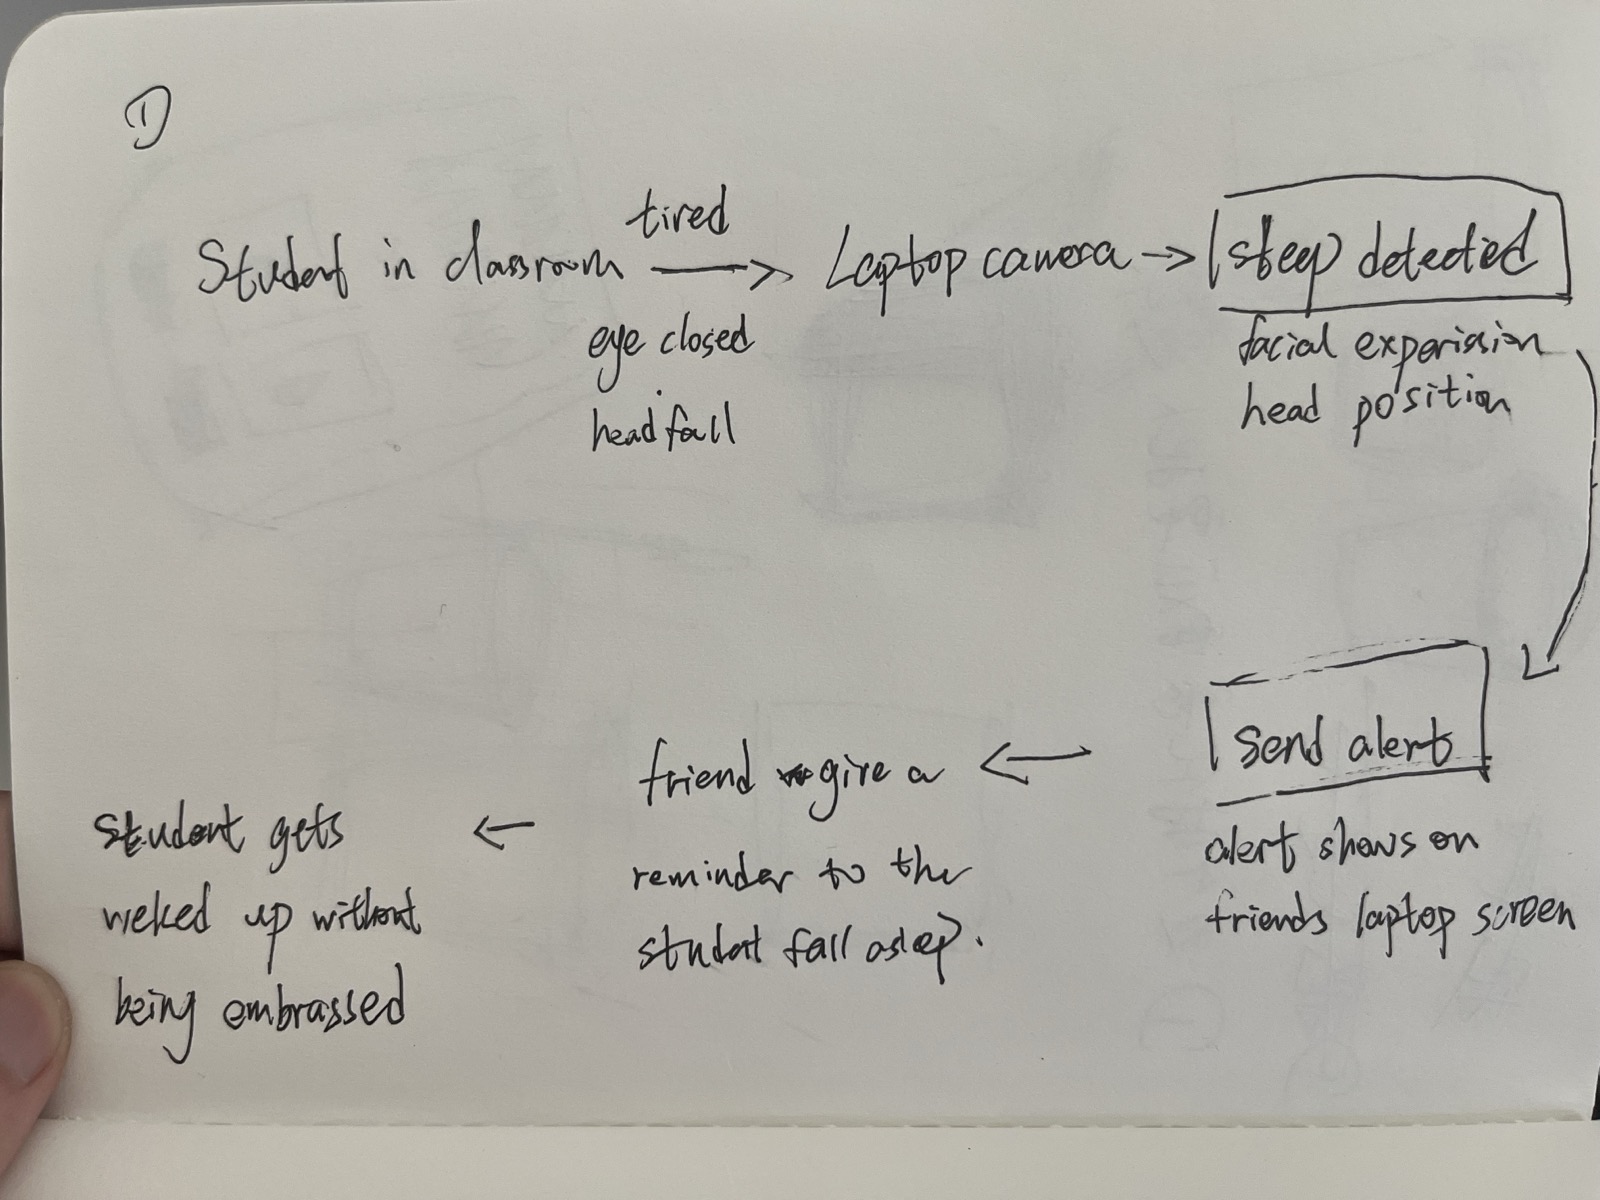 ①
Student in classroom
tired
eye closed
head fall
Laptop camera
sleep detected
facial experission
head position
send alert
alert shows on
friends laptop screen
friend give a
reminder to the
student fall aslep.
Student gets
weked up without
being embrassed